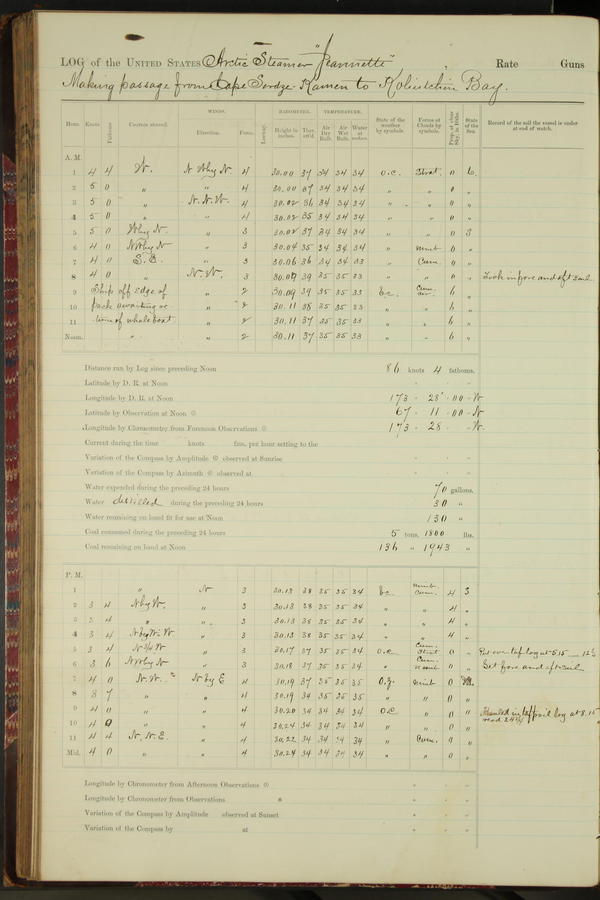 LOG of the UNITED STATES Arctic Steamer "Jeannette" Rate Guns
Making passage from Cape Serdze Kamen to Koliutchin Bay.
WINDS. BAROMETER. TEMPERATURE.
Hour. Knots. Fathoms. Courses steered. Direction. Force. Leeway. Height in inches. Ther. att'd. Air Dry Bulb. Air Wet Bulb. Water at surface. State of the weather by symbols. Forms of Clouds by symbols. Prop. of clear Sky, in 10ths. State of the Sea. Record of the sail the vessel is under at end of watch.
A. M.
1 4 4 W. N Wby N 4 30.00 37 34 34 34 o.c. Strat. 0 6.
2 5 0 " " 4 30.00 37 34 34 34 " " 0 "
3 5 0 " N.N.W. 4 30.02 36 34 34 34 " " 0 "
4 5 0 " " 4 30.02 35 34 34 34 " " 0 "
5 5 0 Wby N. " 3 30.02 37 34 34 34 " " 0 3
6 4 0 NWby N " 3 30.04 35 34 34 34 " Nimb 0 "
7 4 0 S.E. " 3 30.06 36 34 34 33 " Cum. 0 "
8 4 0 " N.W. 3 30.09 39 35 35 33 " " 0 " Took in fore and aft sail
9 Ship off edge of " 2 30.09 39 35 35 33 b.c. Cum. 6 "
10 pack awaiting re " 2 30.11 38 35 35 33 " " 6 "
11 turn of whale boat " 2 30.11 37 35 35 33 " " 6 "
Noon. " " 2 30.11 37 35 35 33 " " 6 "
Distance ran by Log since preceding Noon 86 knots 4 fathoms.
Latitude by D. R. at Noon
Longitude by D. R. at Noon 173 28' 00 W
Latitude by Observation at Noon 67 11 00 N
Longitude by Chronometer from Forenoon Observations 173 28 W.
Current during the time knots fms. per hour setting to the
Variation of the Compass by Amplitude observed at Sunrise
Variation of the Compass by Azimuth observed at
Water expended during the preceding 24 hours 70 gallons.
Water distilled during the preceding 24 hours 30 "
Water remaining on hand fit for use at Noon 130 "
Coal consumed during the preceding 24 hours 5 tons, 1800 lbs.
Coal remaining on hand at Noon 136 " 1943 "
P. M.
1 " N 3 30.13 38 35 35 34 b.c. Nimb. Cum. 4 3
2 3 4 Nby W. " 3 30.13 38 35 35 34 " " 4 "
3 3 4 " " 3 30.13 38 35 35 34 " " 4 "
4 3 4 " 3 30.13 38 35 35 34 " " 4 "
5 3 4 " 3 30.17 37 35 35 34 o.c. Cum. Strat 0 " Put over taff log at 5.15
6 3 6 NWby N " 3 30.18 37 35 35 34 " Cum. Nimb 0 " Set fore and aft sail
7 4 0 N.W. N by E 4 30.19 37 35 35 35 O.g. Nimb 0
8 3 7 " " 4 30.19 34 35 35 35 " " 0 "
9 4 0 " " 4 30.20 34 34 34 34 O.C. " 0 " Hauled in taffrail log at 8.15
10 4 0 " " 4 30.24 34 34 34 34 " " 0 " read
11 4 4 N.N.E. " 4 30.22 34 34 34 34 " Cum. 0 "
Mid. 4 0 " " 4 30.24 34 34 34 34 " " 0 "
Longitude by Chronometer from Afternoon Observations
Longitude by Chronometer from Observations
Variation of the Compass by Amplitude observed at Sunset
Variation of the Compass by at